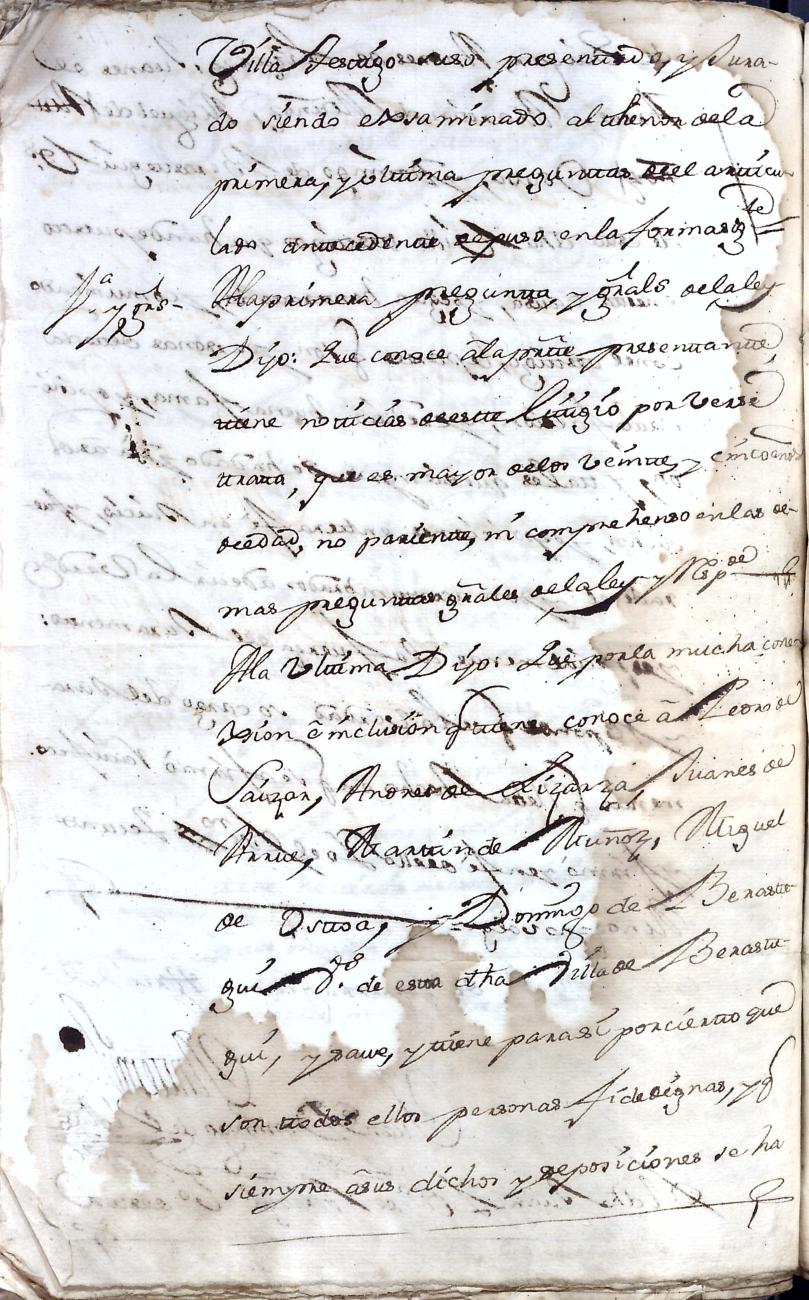 Villa testigo suso presentado, y Jura-
do siendo exsaminado al thenor de la
primera, y vltima preguntas del articu-
lado antecedente depuso en la forma sig.te
1.a y grs- A la primera pregunta, y grals de la ley
Dijo: Que conoce a la prte presentante,
tiene noticias de este litigio por verse
trata, que es mayor de los veinte, y cinco años
de edad, no pariente, ni comprehenso en las de-
mas preguntas grales de la ley y Resp.de
A la Vltima Dijo: Que por la mucha cone-
xsion e inclusion q tiene conoce a Pedro de
Saizar, Andres de Lizarza, Juanes de
Arrue, Martin de Muñoz, Miguel
de Ostoa, y Domingo de Beraste-
gui v.os de esta dha Villa de Beraste-
gui, y save, y tiene para si por cierto que
son todos ellos personas fidedignas, y q
siempre a sus dichos y deposiciones se ha